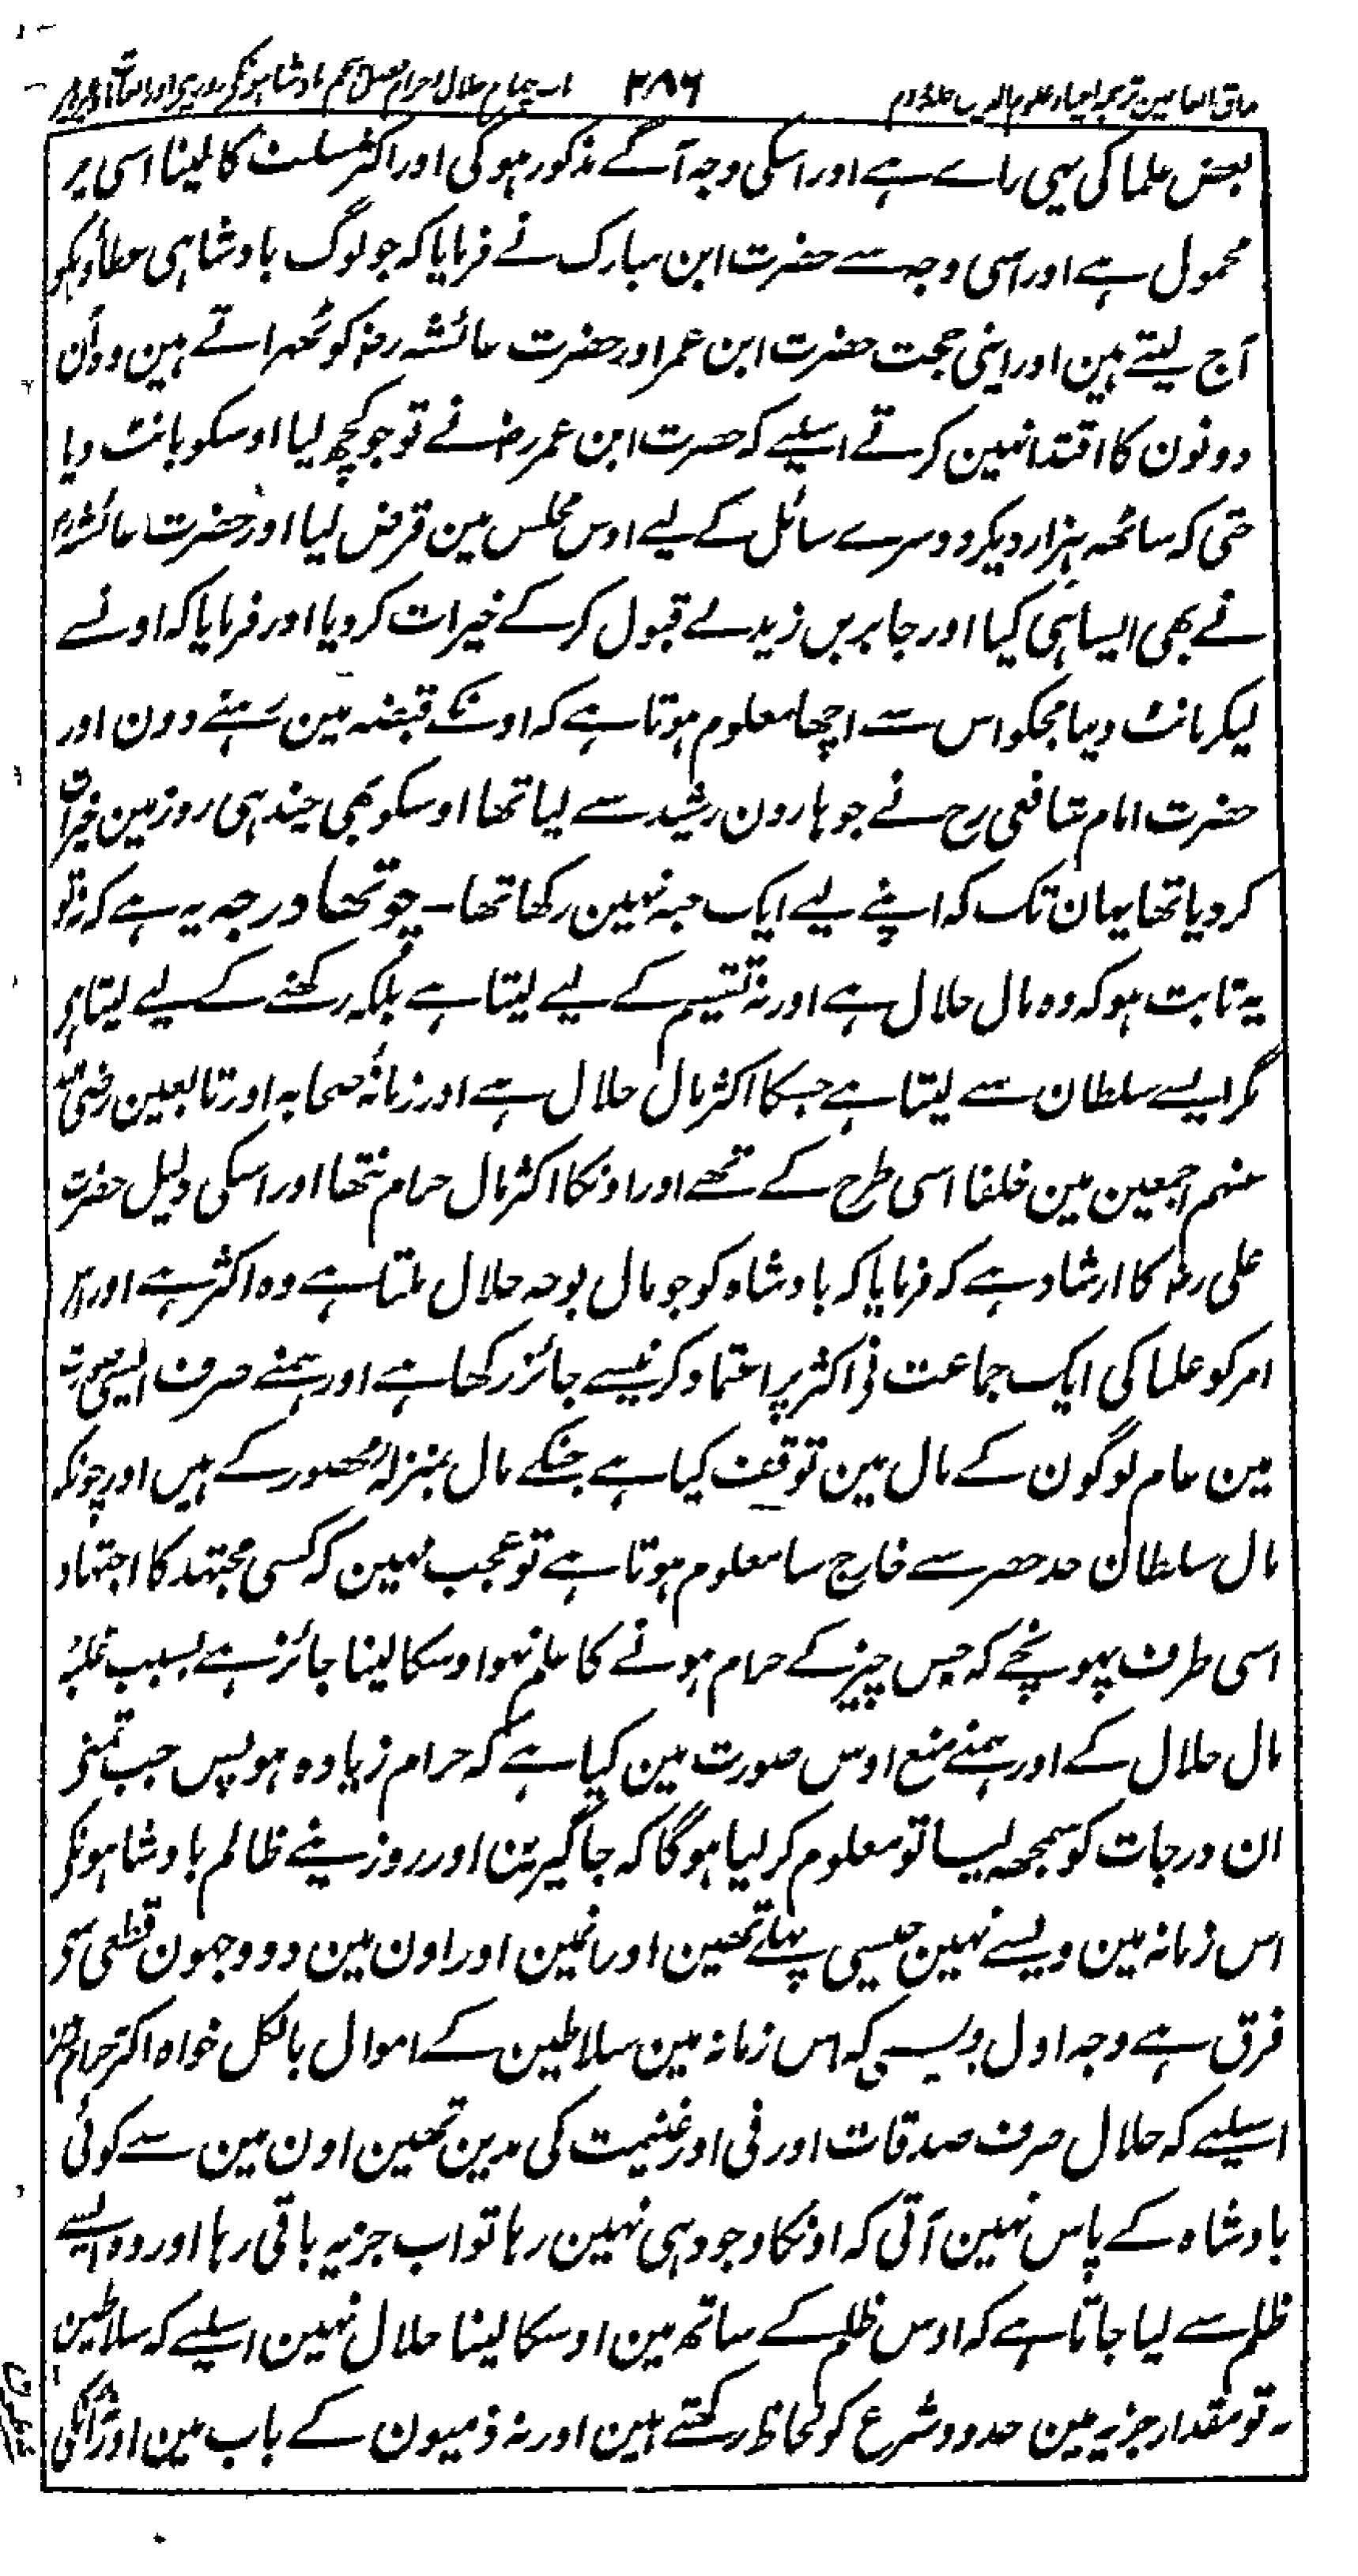 مذاق العارفین ترجمہ احیاء علوم الدین جلد دوم ۲۸۶
بعض علما کی یہی راے ہے اور اسکی وجہ آگے مذکور ہوگی اور اکثر سلف کا لینا اسی پر
محمول ہے اور اسی وجہ سے حضرت ابن مبارک نے فرمایا کہ جو لوگ بادشاہی عطاؤنکو
آج لیتے ہین اور اپنی حجت حضرت ابن عمر اور حضرت عائشہ رضؓ کو ٹھہراتے ہین وہ اُن
دونون کا اقتدا نہین کرتے اسلیے کہ حضرت ابن عمر رضؓ نے تو جو کچھ لیا اوسکو بانٹ دیا
حتی کہ ساٹھہ ہزار دیکر دوسرے سائل کے لیے اوس مجلس مین قرض لیا اور حضرت عائشہ رضؓ
نے بھی ایسا ہی کیا اور جابر بن زید نے قبول کرکے خیرات کر دیا اور فرمایا کہ اونسے
لیکر بانٹ دینا مجکو اس سے اچھا معلوم ہوتا ہے کہ اونکے قبضہ مین رہنے دون اور
حضرت امام شافعی رح نے جو ہارون رشید سے لیا تھا اوسکو بھی چند ہی روز مین خیرات
کر دیا تھا یہان تک کہ اپنے لیے ایک حبہ نہین رکھا تھا۔ چوتھا درجہ یہ ہے کہ نہ تو
یہ ثابت ہو کہ وہ مال حلال ہے اور نہ تقسیم کے لیے لیتا ہے بلکہ رکھنے کے لیے لیتا ہی
مگر ایسے سلطان سے لیتا ہے جسکا اکثر مال حلال ہے اور زمانۂ صحابہ اور تابعین رضی اللہ
عنہم اجمعین مین خلفا اسی طرح کے تھے اور اونکا اکثر مال حرام نتھا اور اسکی دلیل حضرت
علی رضؓ کا ارشاد ہے کہ فرمایا کہ بادشاہ کو جو مال بوجہ حلال ملتا ہے وہ اکثر ہے اور اس
امر کو علما کی ایک جماعت نی اکثر پر اعتماد کرنیسے جائز رکھا ہے اور ہمنے صرف ایسی صورت
مین عام لوگون کے مال مین توقف کیا ہے جنکے مال بمنزلہ محصور کے ہیں اور چونکہ
مال سلطان حد حصر سے خارج سا معلوم ہوتا ہے تو عجب نہین کہ کسی مجتہد کا اجتہاد
اسی طرف پہونچے کہ جس چیز کے حرام ہونے کا علم نہو اوسکا لینا جائز ہے بسبب غلبۂ
مال حلال کے اور ہمنے منع اوس صورت مین کیا ہے کہ حرام زیادہ ہو پس جب تمنی
ان درجات کو سمجھہ لیا تو معلوم کر لیا ہوگا کہ جاگیرین اور روزینے ظالم بادشاہونکی
اس زمانہ مین ویسے نہین جیسی پہلے تھین اور انمین اور اون مین دو وجہون قطعی سی
فرق ہے وجہ اول یہ ہے کہ اس زمانہ مین سلاطین کے اموال بالکل خواہ اکثر حرام ہین
اسلیے کہ حلال صرف صدقات اور فی اور غنیمت کی مدین تھین اون مین سے کوئی
بادشاہ کے پاس نہین آتی کہ اونکا وجود ہی نہین رہا تو اب جزیہ باقی رہا اور وہ ایسے
ظلم سے لیا جاتا ہے کہ اوس ظلم کے ساتھ مین اوسکا لینا حلال نہین اسلیے کہ سلاطین
نہ تو مقدار جزیہ مین حدود شرع کو لحاظ رکھتے ہین اور نہ ذمیون کے باب مین اور نہ اونکی